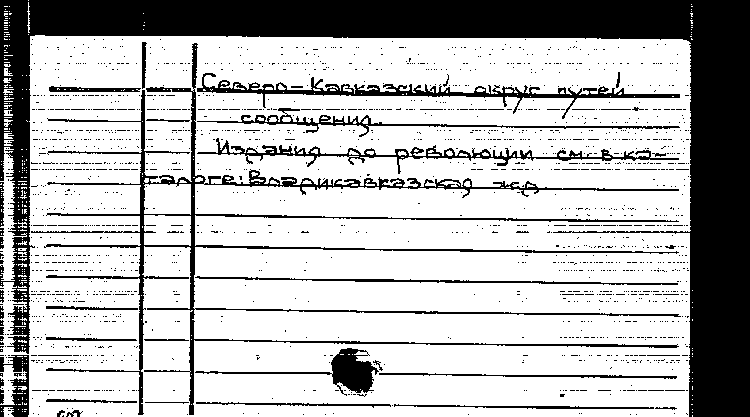 Северо-Кавказский округ путей
сообщения.
Издания до революции см. в ка-
талоге: Владикавказская жд